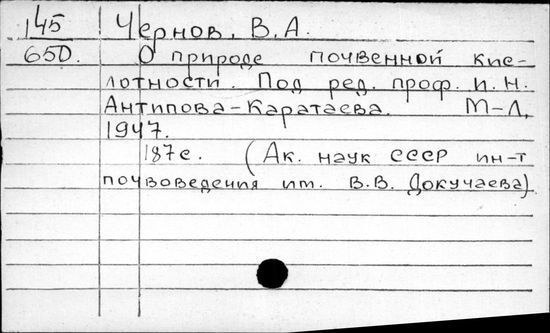 145 Чернов, В.А.
650. О природе почвенной кис-
лотности. Под ред. проф. И.Н.
Антипова-Каратаева. М-Л,
1947.
187с. (Ак. наук СССР ин-т
почвоведения им. В.В. Докучаева)